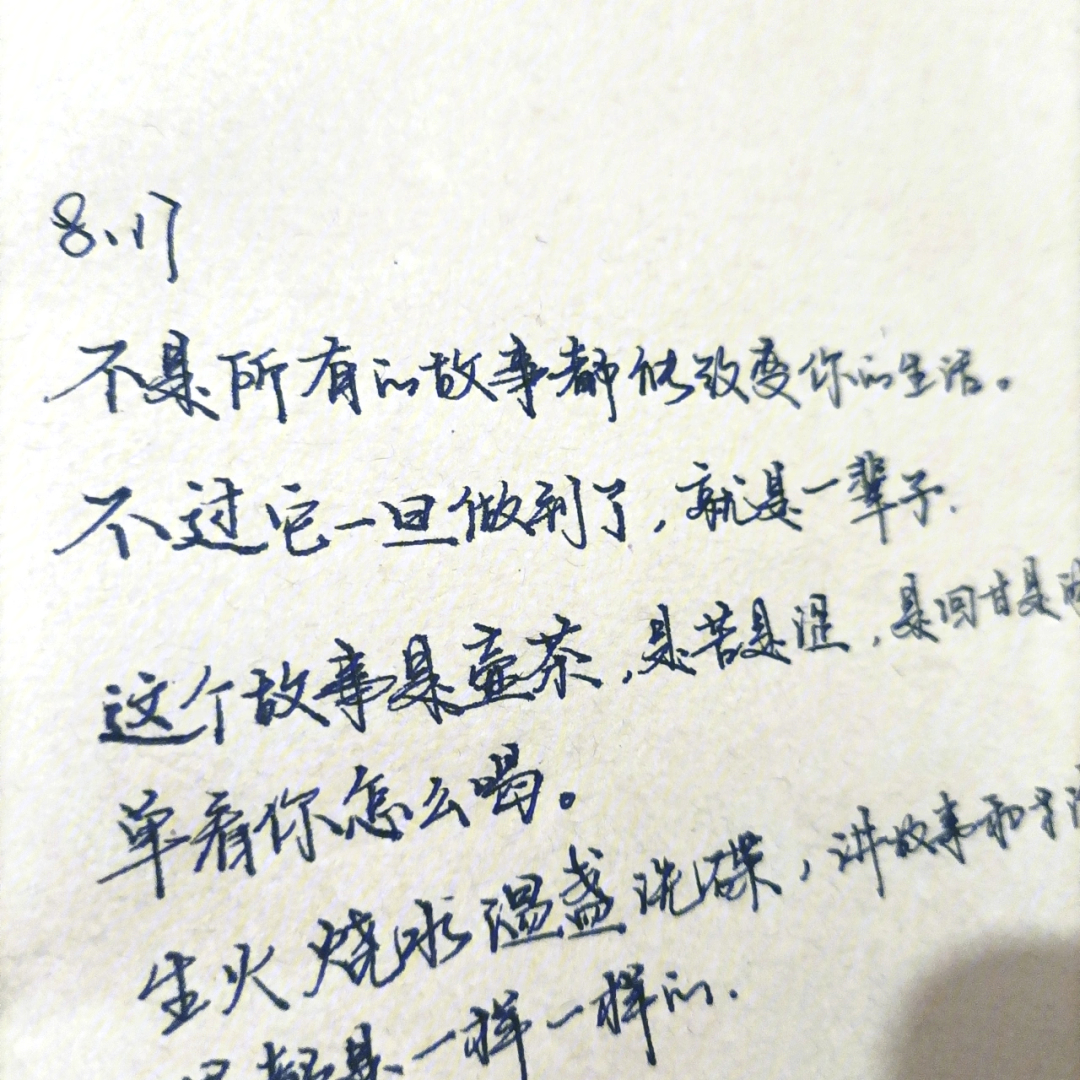 8.17
不是所有的故事都能改变你的生活。
不过它一旦做到了，就是一辈子.
这个故事是壶茶，是苦是涩，是回甘是
单看你怎么喝。
生火烧水温盏洗碟，讲故事和
都是一样一样的.